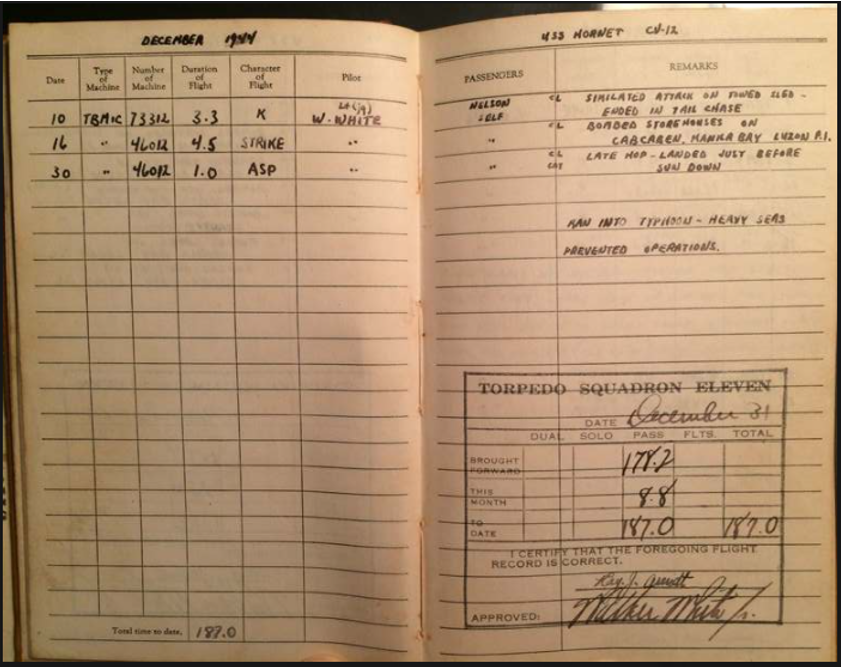 DECEMBER 1944
Date
Type of Machine
Number of Machine
Duration of Flight
Character of Flight
Pilot
10 TBM1C 73312 3.3 K Lt(jg) W. WHITE
16 " 46012 4.5 STRIKE "
30 " 46012 1.0 ASP "
Total time to date, 187.0
USS HORNET CV-12
PASSENGERS
REMARKS
NELSON CL SIMILATED ATTACK ON TOWED SLED -
SELF ENDED IN TAIL CHASE
" CL BOMBED STOREHOUSES ON
CABCABEN, MANILA BAY LUZON P.I.
" CL LATE HOP - LANDED JUST BEFORE
CAT SUN DOWN
RAN INTO TYPHOON - HEAVY SEAS
PREVENTED OPERATIONS.
TORPEDO SQUADRON ELEVEN
DATE December 31
DUAL SOLO PASS FLTS. TOTAL
BROUGHT FORWARD 178.2
THIS MONTH 8.8
TO DATE 187.0 187.0
I CERTIFY THAT THE FOREGOING FLIGHT
RECORD IS CORRECT.
Ray. J.
APPROVED: White Jr.